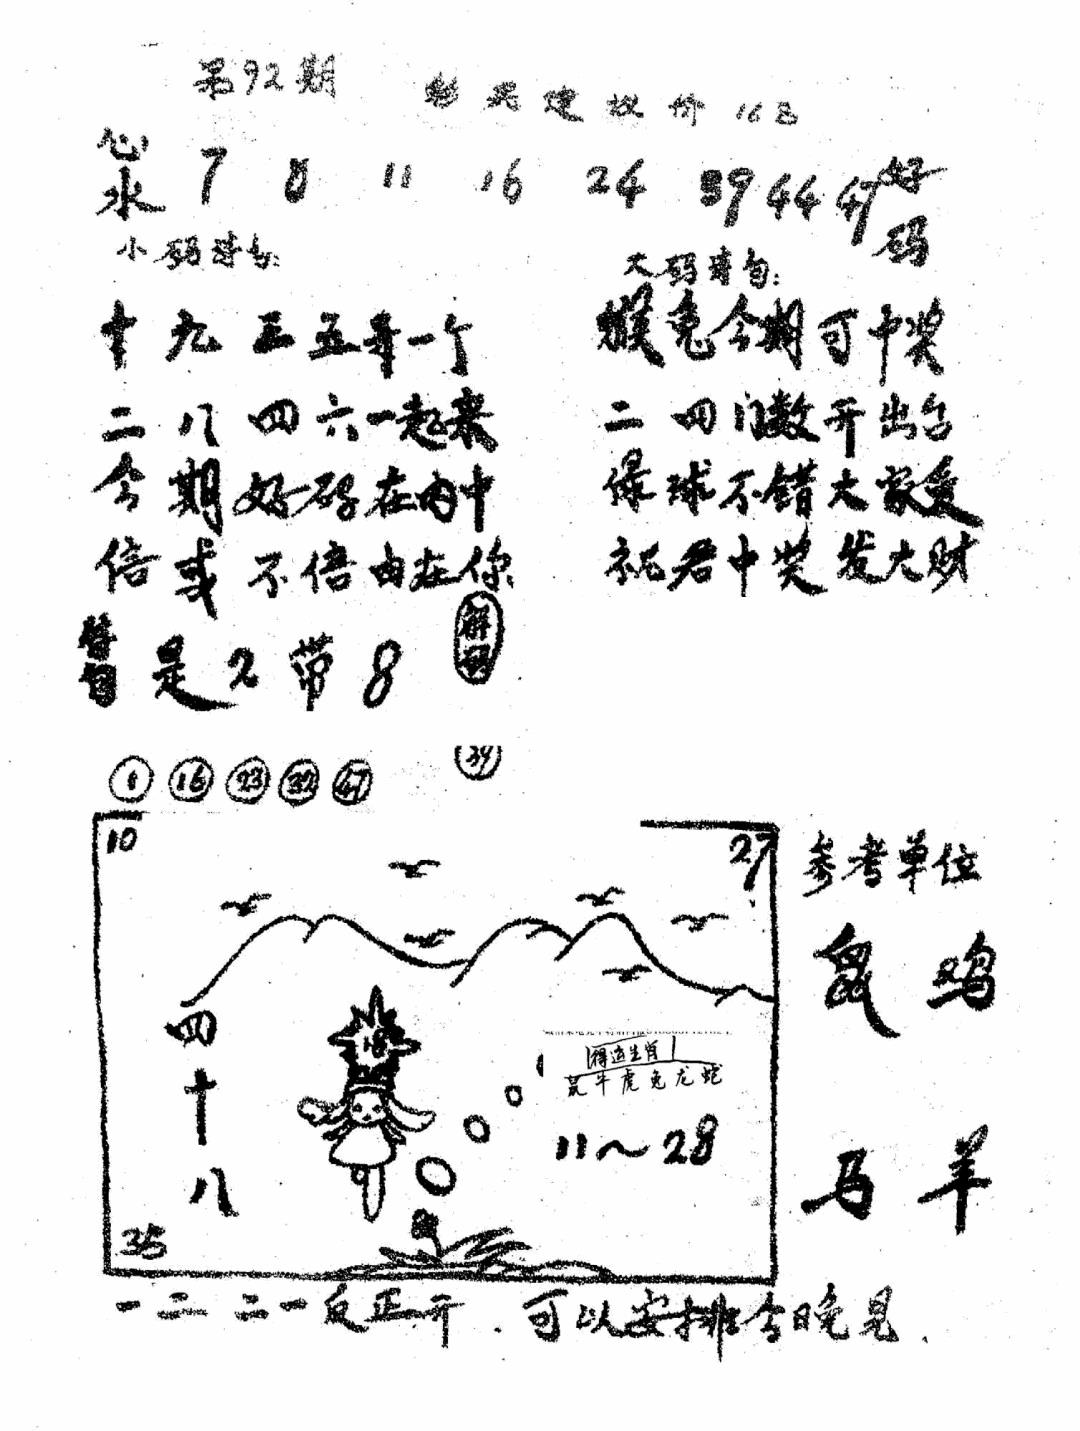 第92期
建议价16
心水 7 8 11 16 24 39 44 47 好码
小码诗句:
十九三五寻一个
二八四六一起来
今期好码在内中
信或不信由在你
大码诗句:
猴兔今期可中奖
二四门数开出台
绿球不错大家爱
祝君中奖发大财
是2带8
解码
16 23 32 47
39
10
27
参考单位
鼠 鸡
马 羊
四十八
得运生肖
鼠牛虎兔龙蛇
11～28
35
一二二一反正开.可以安排今晚见.